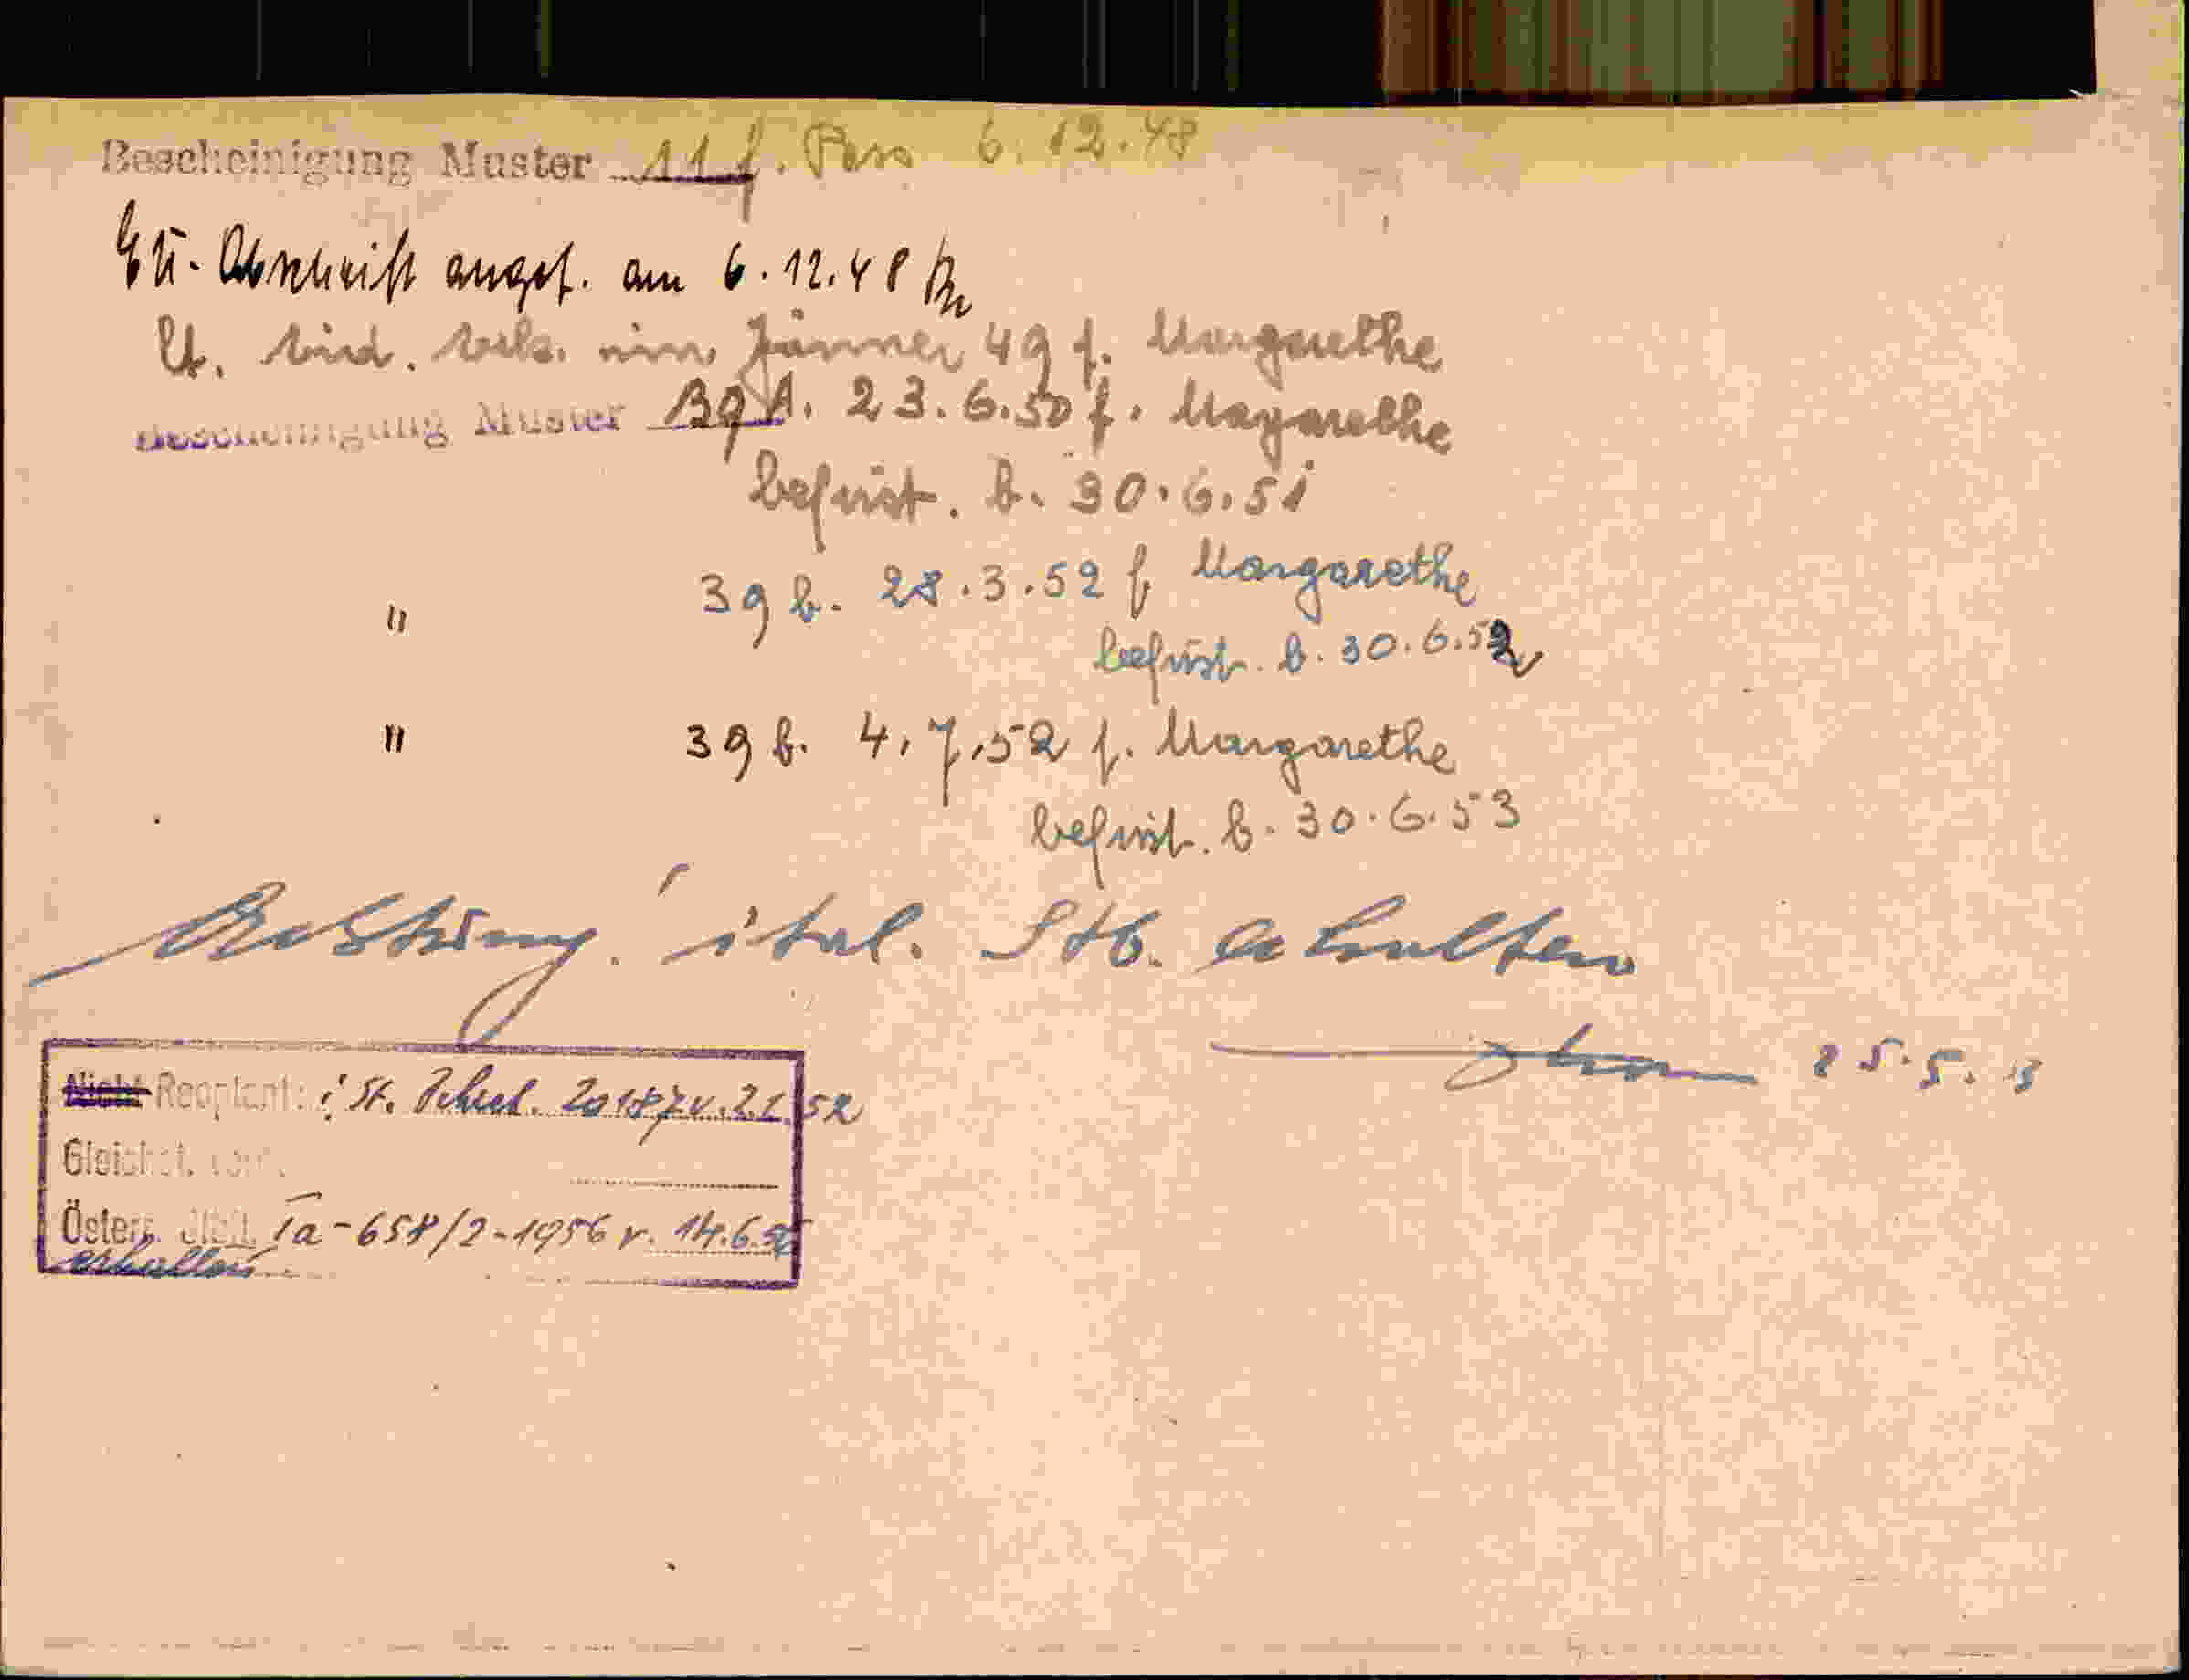 Bescheinigung Muster 11 f. Pass 6.12.48
EU. Abschrift angef. am 6.12.48
lt. Jänner 49 f. Margarethe
Bescheinigung Muster 39 b. 23.6.50 f. Margarethe
befrist. b. 30.6.51
" 39 b. 28.3.52 f. Margarethe
befrist. b. 30.6.52
" 39 b. 4.7.52 f. Margarethe
befrist. b. 30.6.53
ital. Stb. erhalten
25.5.
Nicht Reoptant: 20187 v. 2.1.52
Gleichst.
Österr. Ia-658/2-1956 v. 14.6.56
erhalten